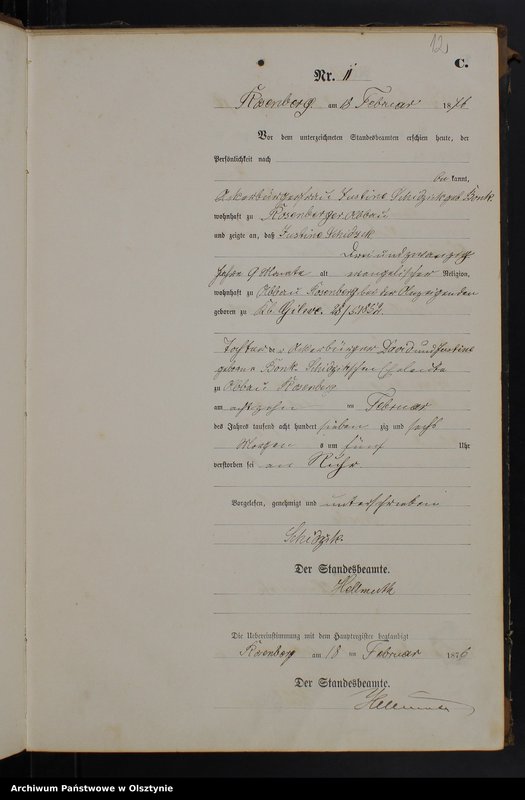 12,
C.
Nr. 11
Rosenberg am 18 Februar 1876
Vor dem unterzeichneten Standesbeamten erschien heute, der
Persönlichkeit nach
be kannt,
Ackerbürgerfrau Justine Schidzik geb. Bonk
wohnhaft zu Rosenberger Abbau
und zeigte an, daß Justine Schidzik
Drei und zwanzig
Jahre 9 Monate alt evangelischer Religion,
wohnhaft zu Abbau Rosenberg bei der Anzeigenden
geboren zu
Tochter der Ackerbürger David und Justine
geborene Bonk Schidzikschen Eheleute
zu Abbau Rosenberg
am achtzehn ten Februar
des Jahres tausend acht hundert sieben zig und sechs
Morgen s um fünf Uhr
verstorben sei an Ruhr
Vorgelesen, genehmigt und unterschrieben
Schidzik
Der Standesbeamte.
Hellmuth
Die Uebereinstimmung mit dem Hauptregister beglaubigt
Rosenberg am 18 ten Februar 1876
Der Standesbeamte.
Hellmuth
Archiwum Państwowe w Olsztynie